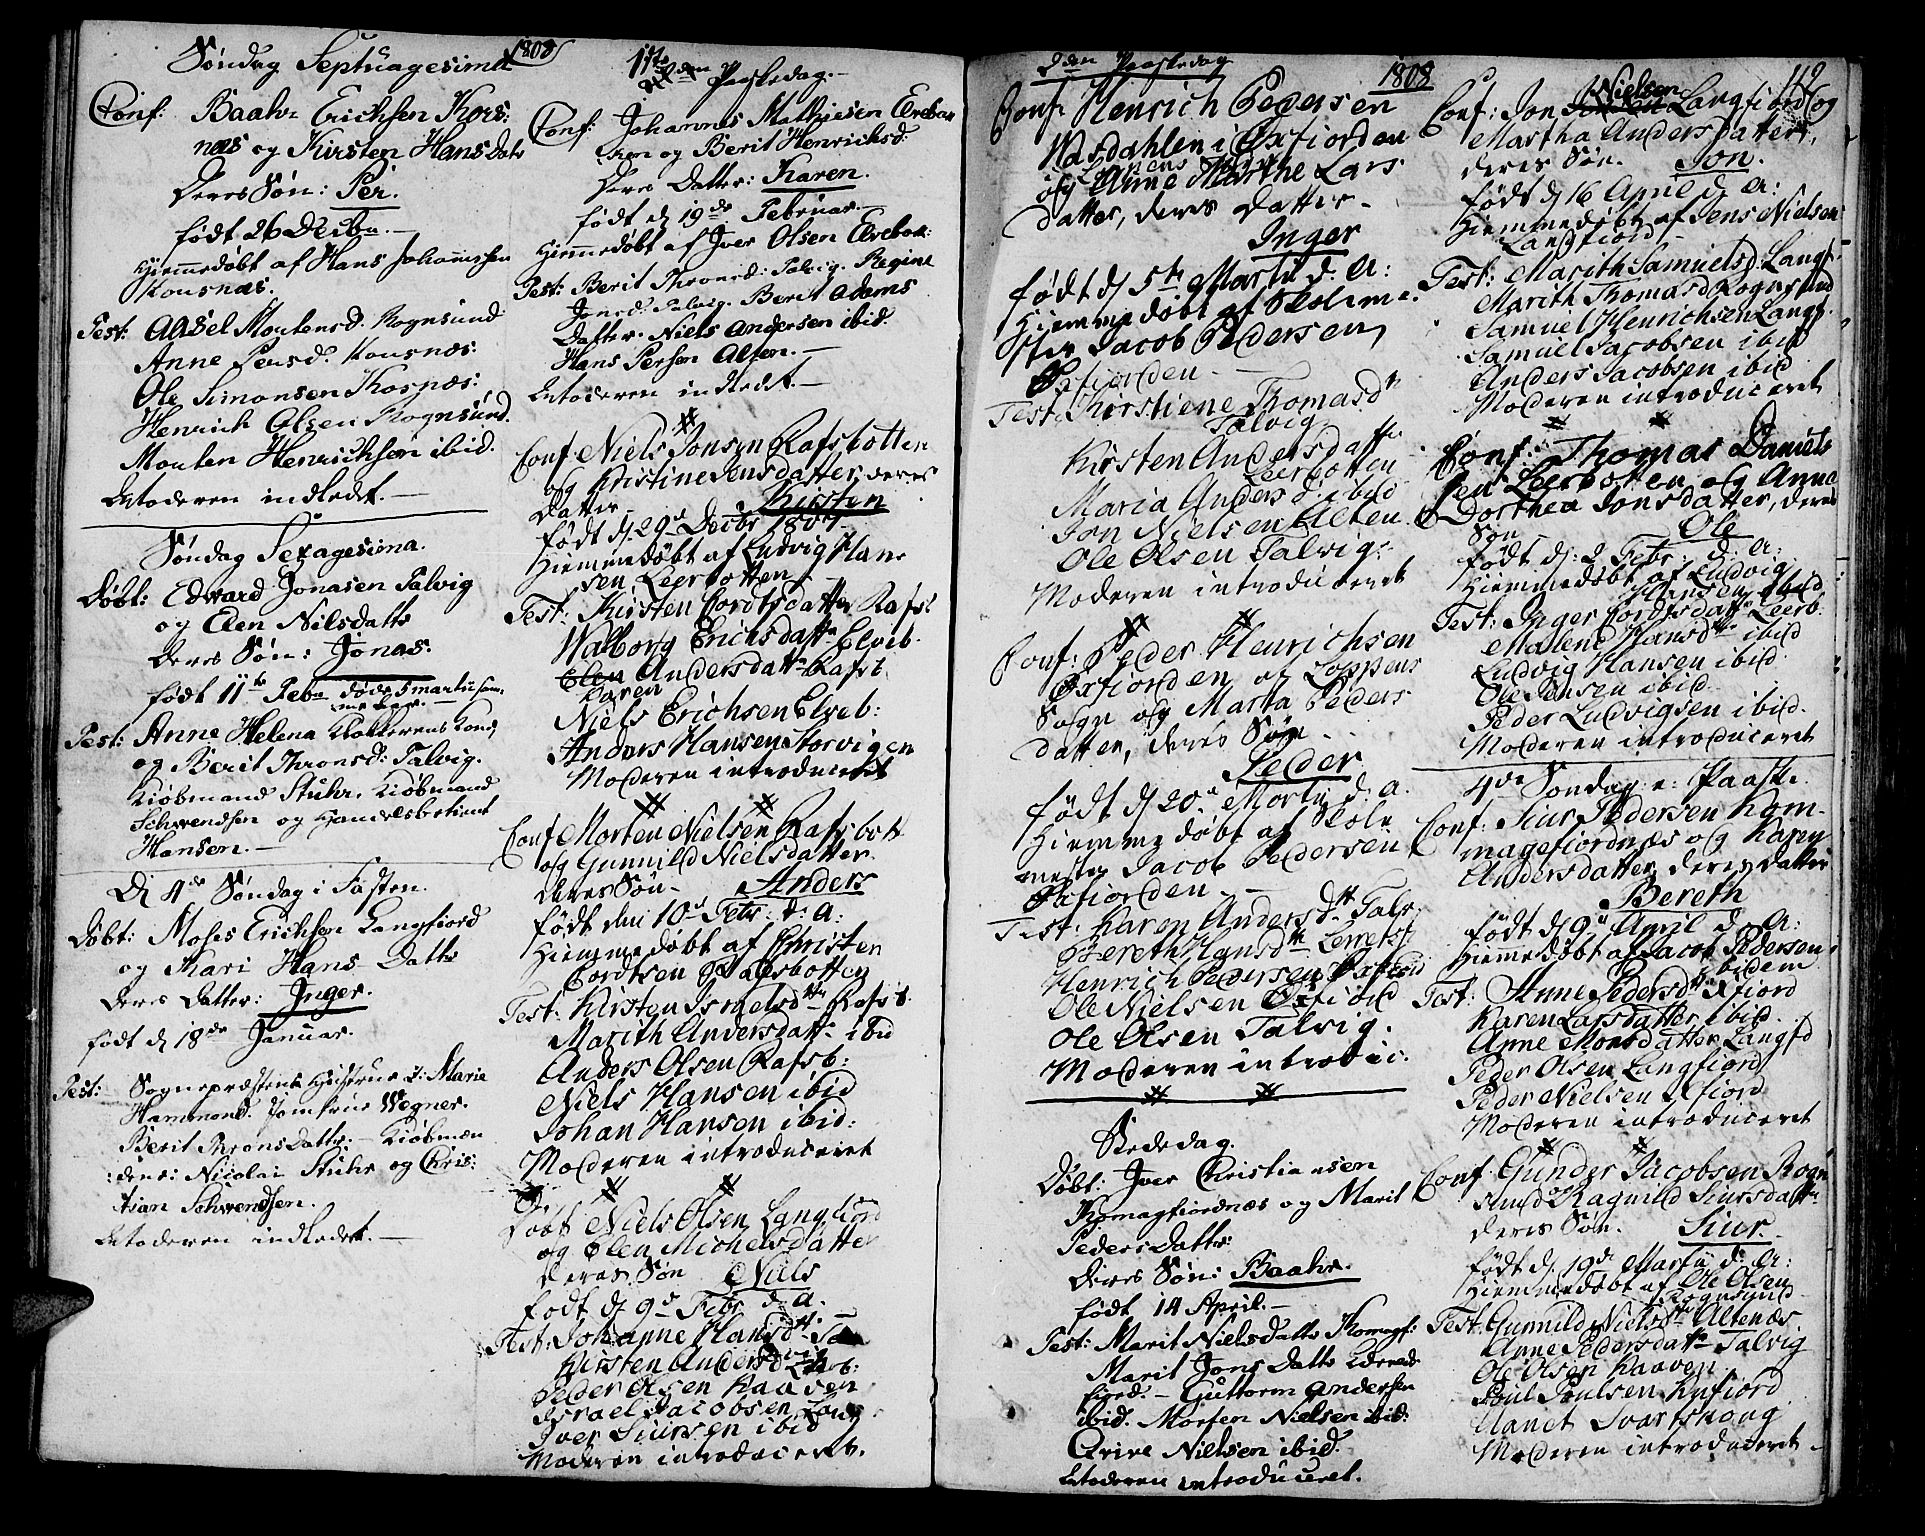 1808
Søndag Septuagesima
Conf: Baahr Erichsen Kors:
næs og Kirsten Hans Datr
Deres Søn: Per.
født 26 Decbr.
Hiemmedøbt af Hans Johannssen
Konsnæs.
Test: Axsel Mortensd. Rognsund
Anne Pensd. Konsnæs:
Ole Simonsen Kosnæs:
Henrich Olsen Rognsund.
Morten Henrichsen ibid.
Moderen indledt.
Søndag Sexagesima.
Døbt: Edward Jonasen Talvig
og Elen Nilsdattr
Deres Søn: Jonas.
født 11te Febr døde 5 martii sam-
me aar.
Test: Anne Helena Klokkerens Kone
og Berit Thronsd: Talvig.
Kiøbmand Stuhr. Kiøbmand
Schwendsen og Handelsbetient
Hansen.
D 4de Søndag i Fasten.
Døbt: Moses Erichsen Langfiord
og Mari Hans Dattr
Deres Datter: Inger.
født d 18de Januar.
Test: Sognepræstens Hustrue s: Marie
Hammond. Jomfrue Wegner.
Berit Throns Dattr. Kiøbmæn
dene: Nicolai Stuhr og Chris:
tian Schwendsen.
Moderen indledt.
1te
Paaskedag.
Conf: Johannes Mathiesen Elvebak
ken og Berit Henricksd:
Deres Datter: Karen.
født d 19de Februar.
Hiemmedøbt af Iver Olsen Elvebak:
Test: Berit Thronsd: Talvig. Regine
Jonsd: Talvig. Berit Adams
Datter. Niels Andersen ibid.
Hans Persen Alten.
Moderen indledt.
Conf: Niels Jonsen Rafsbotten
og Kristine Jensdatter, deres
Datter Kirsten
født d. 29d Decbr 1807
Hiemmedøbt af Ludvig Han
sen Leerbotten
Test: Kirsten Cordtsdatter Rafsb
Walborg Erichsdattr Elveb.
Elen Andersdattr Rafsb.
Karen
Niels Erichsen Elveb:
Anders Hansen Storvigen
Moderen introduceret
Conf Morten Nielsen Rafsbott
og Gunnild Nielsdatter.
deres Søn Anders
født den 10d Febr: d: a:
Hiemmedøbt af Christen
Cordtsen Rafsbotten
Test: Kirsten Ismelsdttr Rafsb.
Marith Andersdattr ibid
Anders Olsen Rafsb:
Niels Hansen ibid
Johan Hansen ibid:
Moderen introduceret
Døbt Niels Olsen Langfiord
og Elen Michelsdatter
deres Søn Niels
født d 9d Febr d. a.
Test: Johanne Hansdtt.
Kirsten Andersd
Peder Olsen Kaaven
Israel Jacobsen Lang
Iver Siursen ibid
Moderen introduceret.
2den Paaskedag 1808
Conf: Henrich Pedersen
Wasdahlen i Øxfiorden
og Anne Marthe Lars
datter, deres Datter
Inger
født d 5te Martii d. A:
Hiemmedøbt af Skoleme:
ster Jacob Pedersen,
Øxfiorden
Test: Kirstiene Thomasdtr
Talvig
Kirsten Andersdatter
Leerbotten
Maria Andersd ibid
Jon Nielsen Alten.
Ole Olsen Talvig:
Moderen introduceret
Conf: Peder Henrichsen
Øxfiorden og Loppens
Sogn og Marta Peders
datter, deres Søn
Peder
født d 20d Martii d. a.
Hiemmedøbt af Skole
mester Jacob Pedersen
Øxfiorden
Test: Karen Andersdtt Talv.
Bereth Hansdtt
Henrich Pedersen Øxfiord
Ole Nielsen Øxfiord
Ole Olsen Talvig.
Moderen introduc.
Bededag.
Døbt: Iver Christiansen
Komagfiordnæs og Marit
Peders Dattr
Deres Søn: Baahr.
født 14 April.
Test: Marit Nielsdattr Komagf:
Marit Jons Dattr
fiord: Guttorm Andersen
ibid. Morten Nielsen ibid:
Nielsen ibid.
Moderen introduceret.
112
Conf: Jon Nielsen Langfiord og
Martha Andersdatter,
deres Søn. Jon.
født d 16 April d. A:
Hiemmedøbt af Jens Nielsen
Langfiord
Test: Marith Samuelsd. Langf:
Marith Thomasd Rognsund
Samuel Henrichsen Langf.
Samuel Jacobsen ibid
Anders Jacobsen ibid
Moderen introduceret
Conf: Thomas Daniels
sen Leerbotten og Anna
Dorthea Jonsdatter, deres
Søn Ole
født d: 2 Febr: d. A:
Hiemmedøbt af Ludvig
Hansen ibid
Test: Inger Cordtsdattr Leerb.
Malene Hansdtt ibid
Ludvig Hansen ibid.
Ole Jensen ibid.
Peder Ludvigsen ibid.
Moderen introduceret
4de Søndag e: Paaske
Conf: Siur Pedersen Kom-
magefiordnæs og Karen
Andersdatter deres datter
Bereth
født d 9d April d. A:
Hiemmedøbt af Jacob Pedersen
ibidem
Test: Anne Pedersdtt Øxfiord
Karen Larsdatter ibid.
Anne Monsdatter Langfd
Peder Olsen Langfiord
Peder Nielsen Øxfiord
Moderen introduceret
Conf Gunder Jacobsen Rogn
sund og Ragnild Siursdattr
deres Søn. Siur.
født d 19d Martii d. A:
Hiemmedøbt af Ole Olsen
Rognsund
Test: Gunnild Nielsdtt Altenæs.
Anne Pedersdattr Talvig
Ole Olsen Kaaven
Poul Poulsen Kufiord
Svartskoug
Moderen introduceret